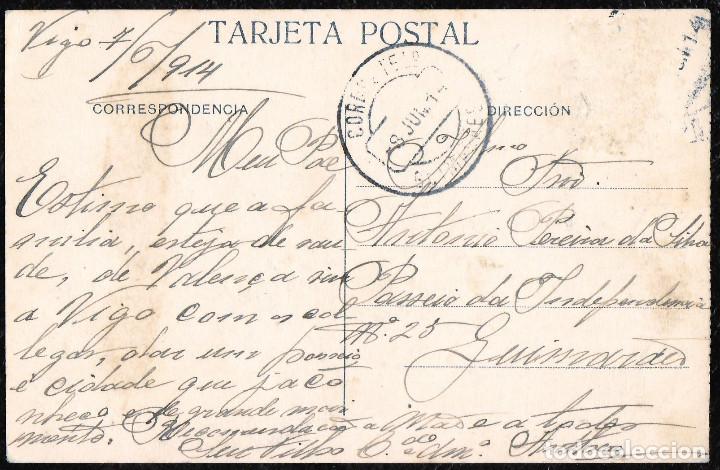 Vigo 7/6/914
TARJETA POSTAL
CORRESPONDENCIA
DIRECCIÓN
8 JUN 14
Meu Pae
Estimo que a fa
milia, esteja de sau
de, de Valença vim
a Vigo com os col
legas, dar um passeio
é cidade que já co
nheço e de grande movi
mento. Recommendações a Mãe e a todos
Seu Filho
Exmo
Snr
Antonio Pereira da Silva
Passeio da Independencia
Nº 25
Guimarães
todocoleccion.net